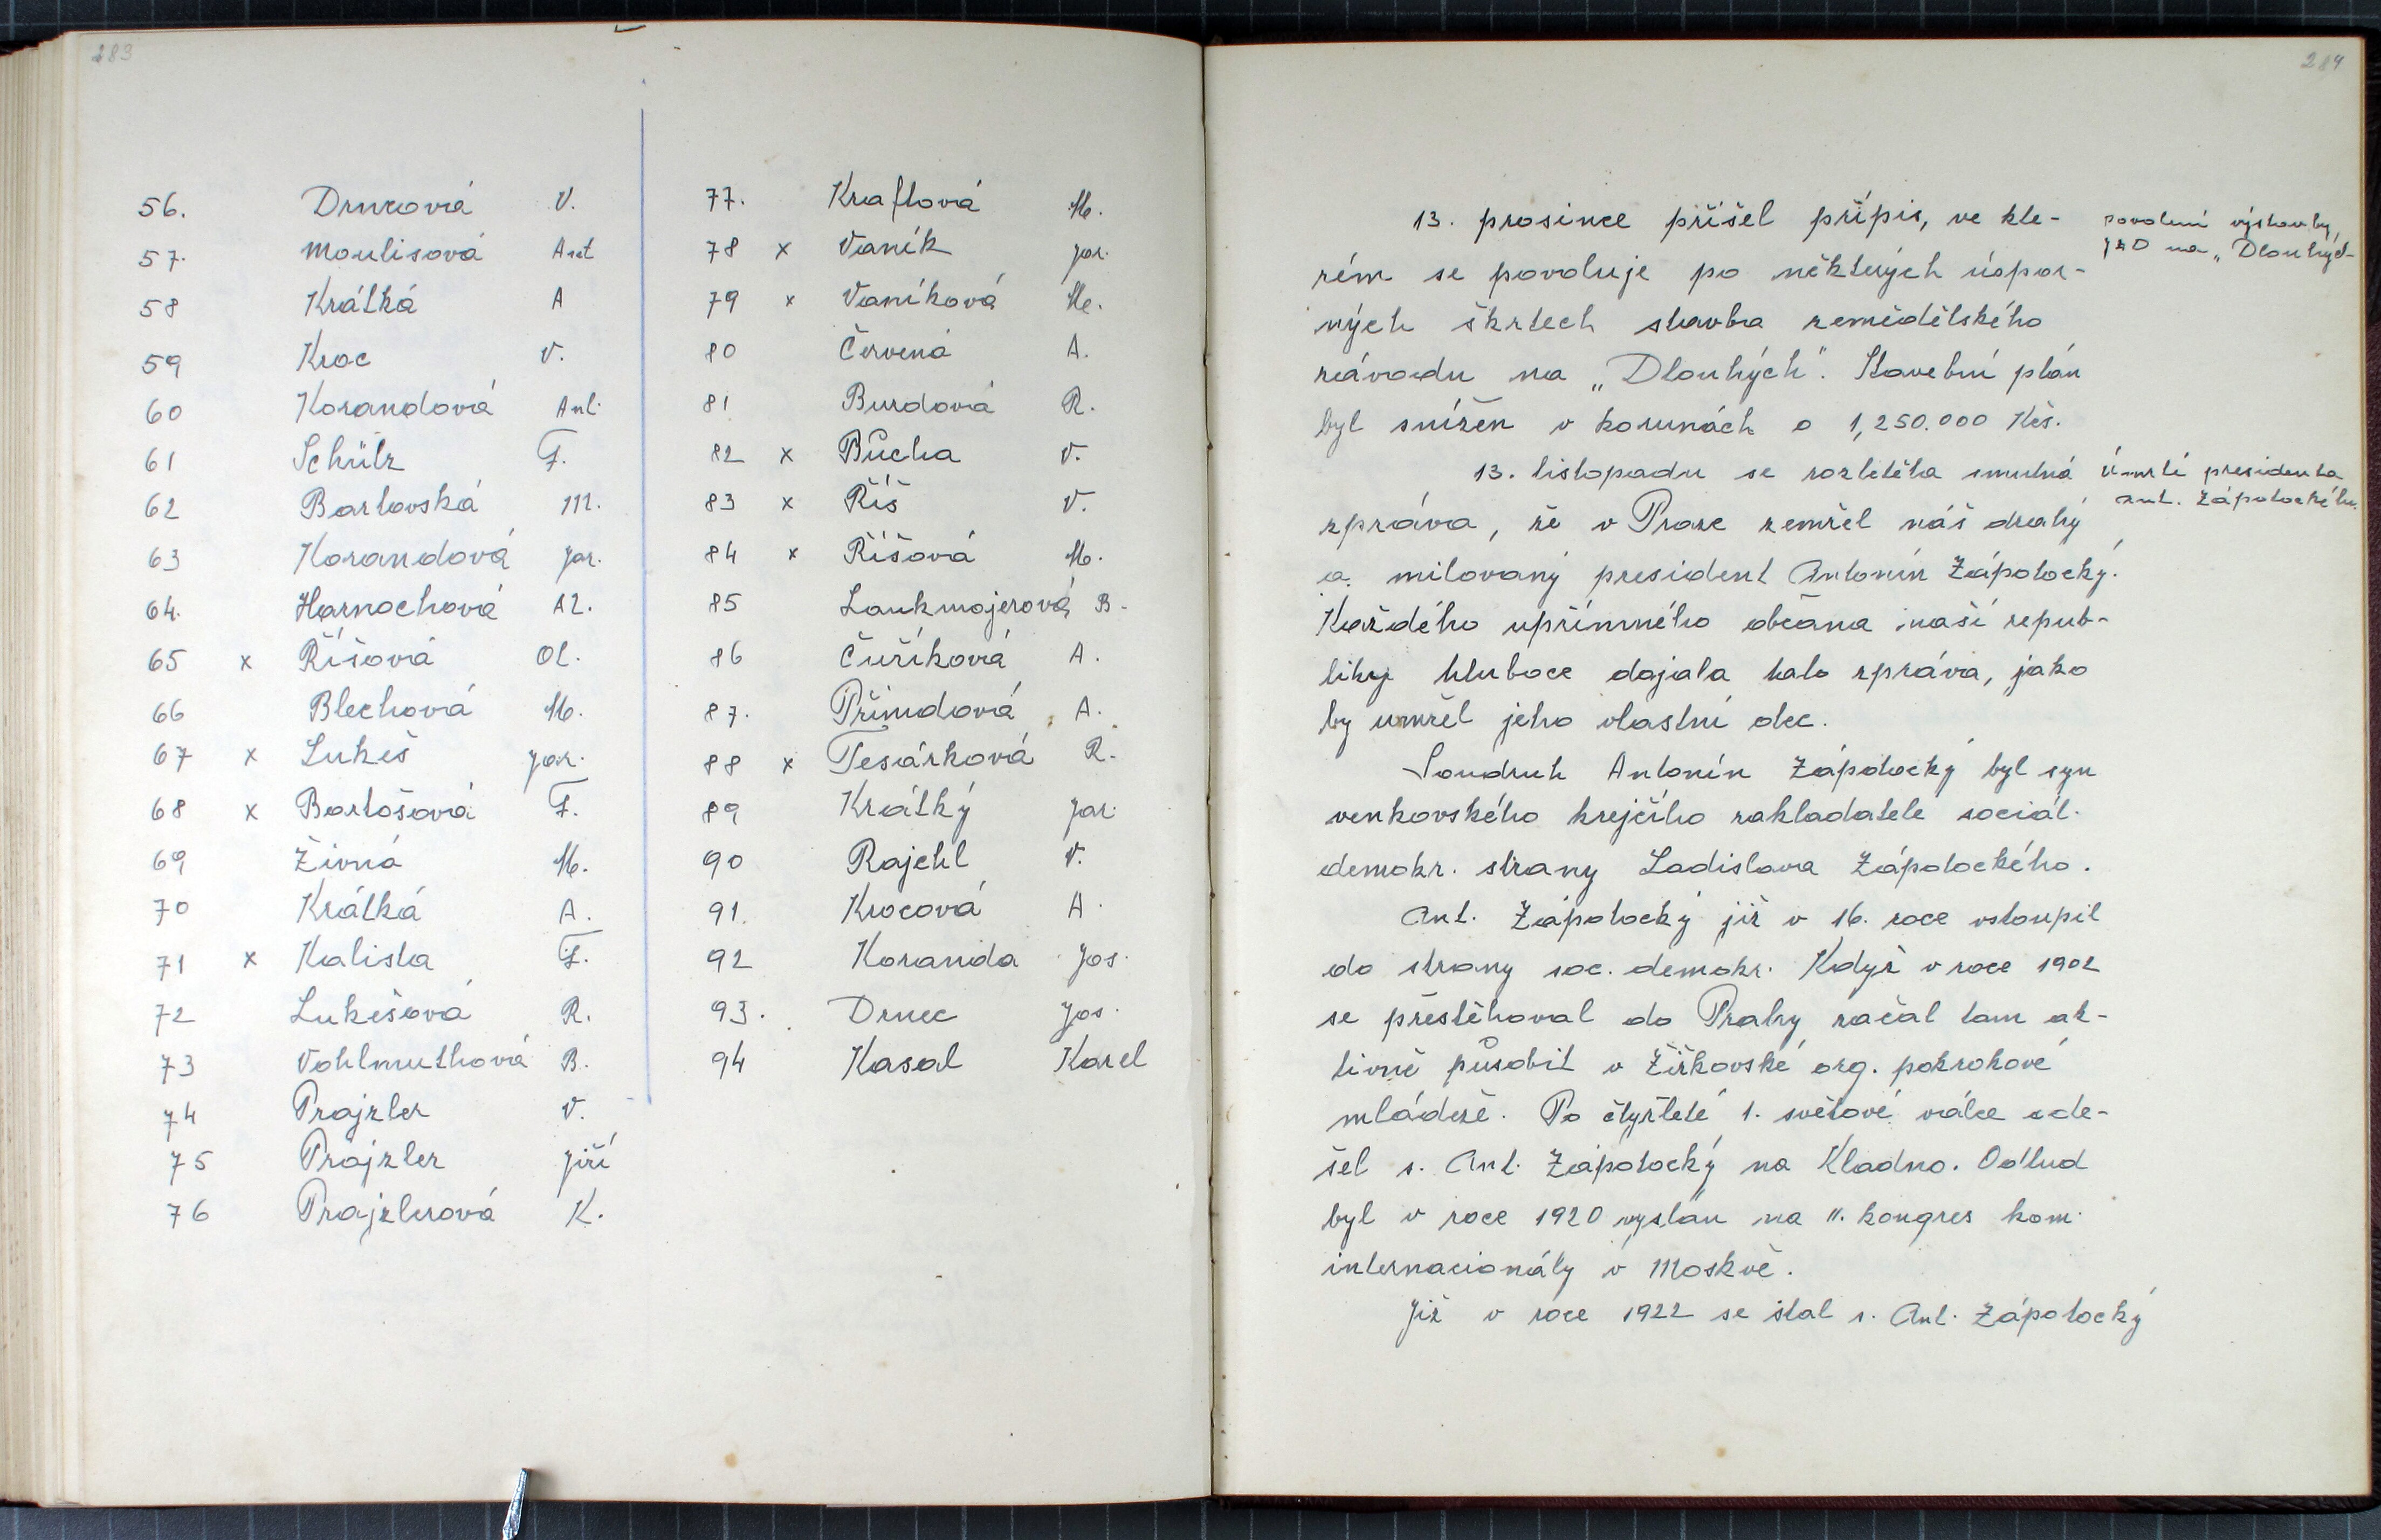 283
56. Drncová V.
57. Moulisová Ant
58 Krátká A
59 Kroc V.
60 Korandová Ant.
61 Schülz F.
62 Bartovská M.
63 Korandová Jar.
64. Harnochová Al.
65 x Říšová Ol.
66 Blechová M.
67 x Lukeš Jar.
68 x Bartošová F.
69 Živná M.
70 Krátká A.
71 x Kalista F.
72 Lukešová R.
73 Vohlmuthová B.
74 Prajzler V.
75 Prajzler Jiří
76 Prajzlerová K.
77. Kraftová M.
78 x Vaník Jar.
79 x Vaníková M.
80 Červená A.
81 Burdová R.
82 x Bůcha V.
83 x Říš V.
84 x Říšová M.
85 Laukmajerová B.
86 Čuříková A.
87. Přimdová A.
88 x Tesárková R.
89 Krátký Jar.
90 Rajchl V.
91. Krocová A.
92 Koranda Jos.
93. Drnec Jos.
94 Kasal Karel
284
13. prosince přišel přípis, ve kte-
rém se povoluje po některých úspor-
ných škrtech stavba zemědělského
závodu na „Dlouhých". Stavební plán
byl snížen v korunách o 1,250.000 Kčs.
povolení výstavby
JZD na „Dlouhých
13. listopadu se rozletěla smutná
zpráva, že v Praze zemřel náš drahý
a milovaný president Antonín Zápotocký.
Každého upřímného občana naší repub-
liky hluboce dojala tato zpráva, jako
by umřel jeho vlastní otec.
Úmrtí presidenta
Ant. Zápotockého.
Soudruh Antonín Zápotocký byl syn
venkovského krejčího zakladatele sociál.
demokr. strany Ladislava Zápotockého.
Ant. Zápotocký již v 16. roce vstoupil
do strany soc. demokr. Když v roce 1902
se přestěhoval do Prahy začal tam ak-
tivně působit v Žižkovské org. pokrokové
mládeže. Po čtyřleté 1. světové válce ode-
šel s. Ant. Zápotocký na Kladno. Odtud
byl v roce 1920 vyslán na II. kongres kom.
internacionály v Moskvě.
Již v roce 1922 se stal s. Ant. Zápotocký